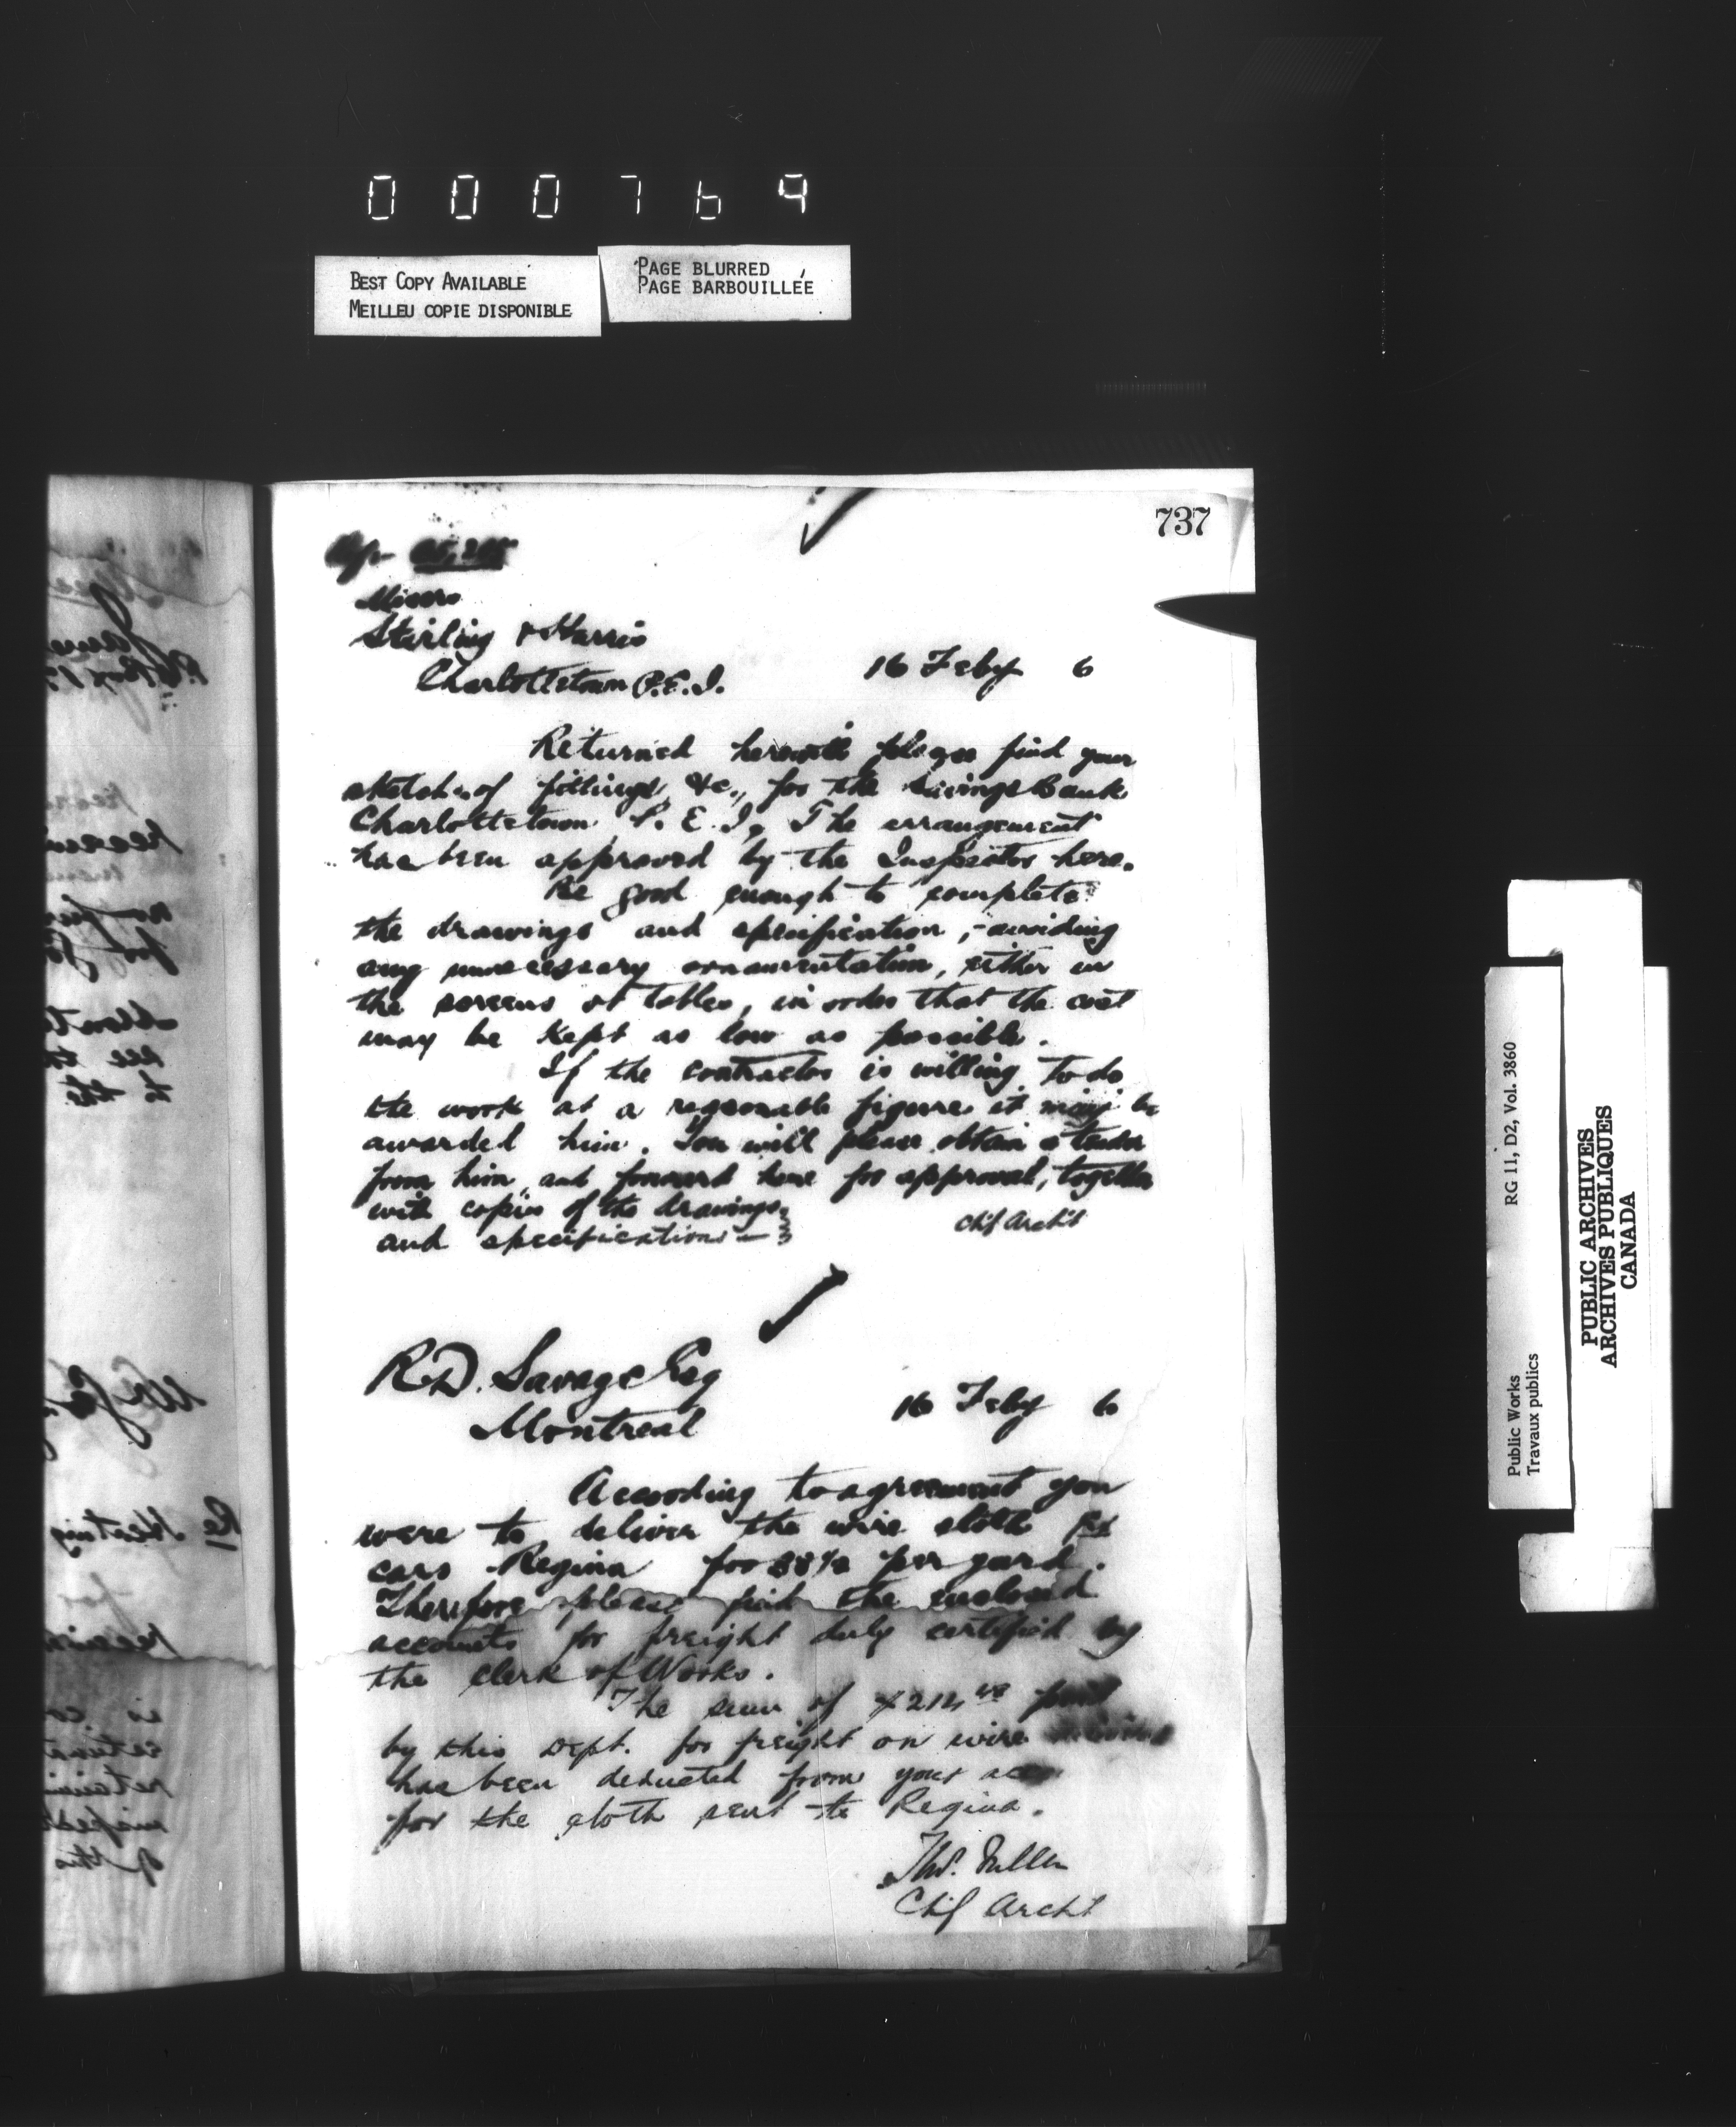 000769
BEST COPY AVAILABLE
MEILLEU COPIE DISPONIBLE
PAGE BLURRED
PAGE BARBOUILLÉE
737
Messrs
Stirling & Harris
Charlottetown P.E.I.
16 Feby 6
Returned herewith please find your
sketch of fittings, &c., for the Savings Bank
Charlottetown P.E.I. The arrangement
has been approved by the Inspector here.
Be good enough to complete
the drawings and specification, - avoiding
any unnecessary ornamentation, either in
the screens or tables, in order that the cost
may be kept as low as possible.
If the contractor is willing to do
the work at a reasonable figure it may be
awarded him. You will please obtain a tender
from him, and forward here for approval, together
with copies of the drawings
and specifications
Chf Archt
R.D. Savage Esq
Montreal
16 Feby 6
According to agreement you
were to deliver the wire cloth
cars Regina for per yard.
Therefore please find the enclosed
accounts for freight duly certified by
the Clerk of Works.
The sum of $214 paid
by this Dept. for freight on wire
has been deducted from your
for the cloth sent to Regina.
Thos. Fuller
Chf Archt
RG 11, D2, Vol. 3860
Public Works
Travaux publics
PUBLIC ARCHIVES
ARCHIVES PUBLIQUES
CANADA